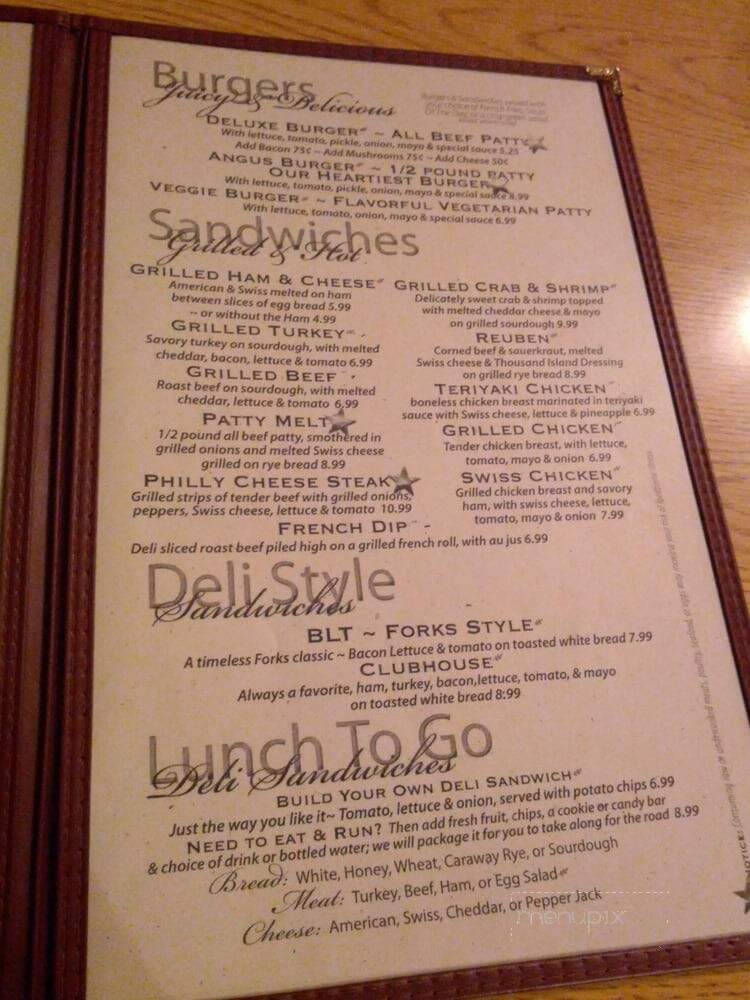 Burgers
Juicy & Delicious
Burgers & Sandwiches served with
your choice of French Fries, Soup
Deluxe Burger ~ All Beef Patty
With lettuce, tomato, pickle, onion, mayo & special sauce 5.25
Add Bacon 75¢ ~ Add Mushrooms 75¢ ~ Add Cheese 50¢
Angus Burger ~ 1/2 pound patty
Our Heartiest Burger
With lettuce, tomato, pickle, onion, mayo & special sauce 8.99
Veggie Burger ~ Flavorful Vegetarian Patty
With lettuce, tomato, onion, mayo & special sauce 6.99
Sandwiches
Grilled & Hot
Grilled Ham & Cheese
American & Swiss melted on ham
between slices of egg bread 5.99
~ or without the Ham 4.99
Grilled Turkey
Savory turkey on sourdough, with melted
cheddar, bacon, lettuce & tomato 6.99
Grilled Beef
Roast beef on sourdough, with melted
cheddar, lettuce & tomato 6.99
Patty Melt
1/2 pound all beef patty, smothered in
grilled onions and melted Swiss cheese
grilled on rye bread 8.99
Philly Cheese Steak
Grilled strips of tender beef with grilled onions,
peppers, Swiss cheese, lettuce & tomato 10.99
Grilled Crab & Shrimp
Delicately sweet crab & shrimp topped
with melted cheddar cheese & mayo
on grilled sourdough 9.99
Reuben
Corned beef & sauerkraut, melted
Swiss cheese & Thousand Island Dressing
on grilled rye bread 8.99
Teriyaki Chicken
boneless chicken breast marinated in teriyaki
sauce with Swiss cheese, lettuce & pineapple 6.99
Grilled Chicken
Tender chicken breast, with lettuce,
tomato, mayo & onion 6.99
Swiss Chicken
Grilled chicken breast and savory
ham, with swiss cheese, lettuce,
tomato, mayo & onion 7.99
French Dip
Deli sliced roast beef piled high on a grilled french roll, with au jus 6.99
Deli Style
Sandwiches
BLT ~ Forks Style
A timeless Forks classic ~ Bacon Lettuce & tomato on toasted white bread 7.99
Clubhouse
Always a favorite, ham, turkey, bacon,lettuce, tomato, & mayo
on toasted white bread 8:99
Lunch To Go
Deli Sandwiches
Build Your Own Deli Sandwich
Just the way you like it~ Tomato, lettuce & onion, served with potato chips 6.99
Need to eat & Run? Then add fresh fruit, chips, a cookie or candy bar
& choice of drink or bottled water; we will package it for you to take along for the road 8.99
Bread: White, Honey, Wheat, Caraway Rye, or Sourdough
Meat: Turkey, Beef, Ham, or Egg Salad
Cheese: American, Swiss, Cheddar, or Pepper Jack
NOTICE: Consuming raw or undercooked meats, poultry, seafood or eggs may increase your risk of foodborne illness
menupix